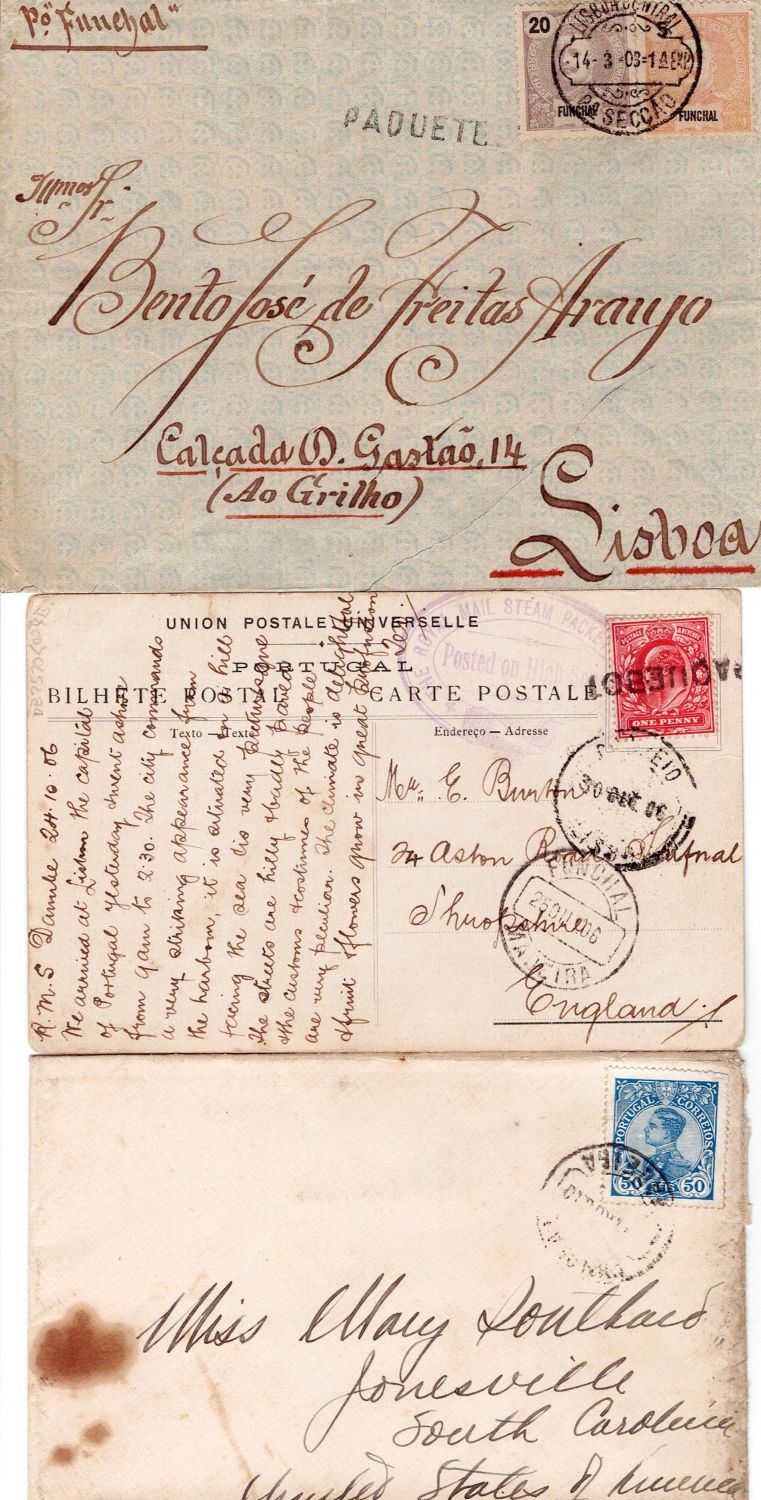 Pº "Funchal"
PAQUETE
20
FUNCHAL
5
FUNCHAL
LISBOA CENTRAL
14-3-03-1A EXP
2ª SECCÃO
Illmos Sr.
Bento José de Freitas Araujo
Calçada D. Gastão, 14
(Ao Grilho)
Lisboa
UNION POSTALE UNIVERSELLE
PORTUGAL
BILHETE POSTAL
CARTE POSTALE
Texto — Texte
Endereço — Adresse
THE ROYAL MAIL STEAM PACKE
Posted on High Se
POSTAGE & REVENUE
ONE PENNY
PAQUEBOT
R.M.S Danube 24.10.06
We arrived at Lisbon the capital
of Portugal yesterday & went ashore
from 9am to 2.30. The city commands
a very striking appearance from
the harbour, it is situated on a hill
facing the sea & is very picturesque
The streets are hilly & badly paved
& the customs & costumes of the people
are very peculiar. The climate is delightful
& fruit & flowers grow in great profusion
Mr. E. Burton
24 Aston Road Shifnal
Shropshire
England
FUNCHAL
06
MADEIRA
PORTUGAL CORREIOS
50 REIS 50
Miss Mary Southard
Jonesville
South Carolina
United States of America